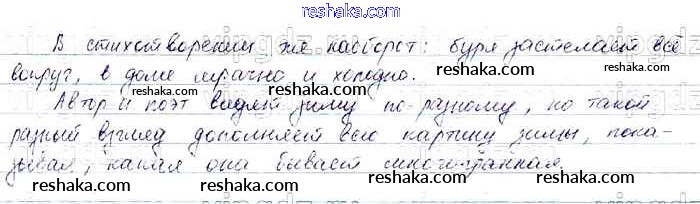 reshaka.com
В стихотворении же наоборот: буря застелает всё
вокруг, в доме мрачно и холодно.
Автор и поэт видят зиму по-разному, но такой
разный взгляд дополняет всю картину зимы, пока-
зывая, какая она бывает многогранная.
reshaka.com
reshaka.com
reshaka.com
reshaka.com
reshaka.com
reshaka.com
reshaka.com
reshaka.com